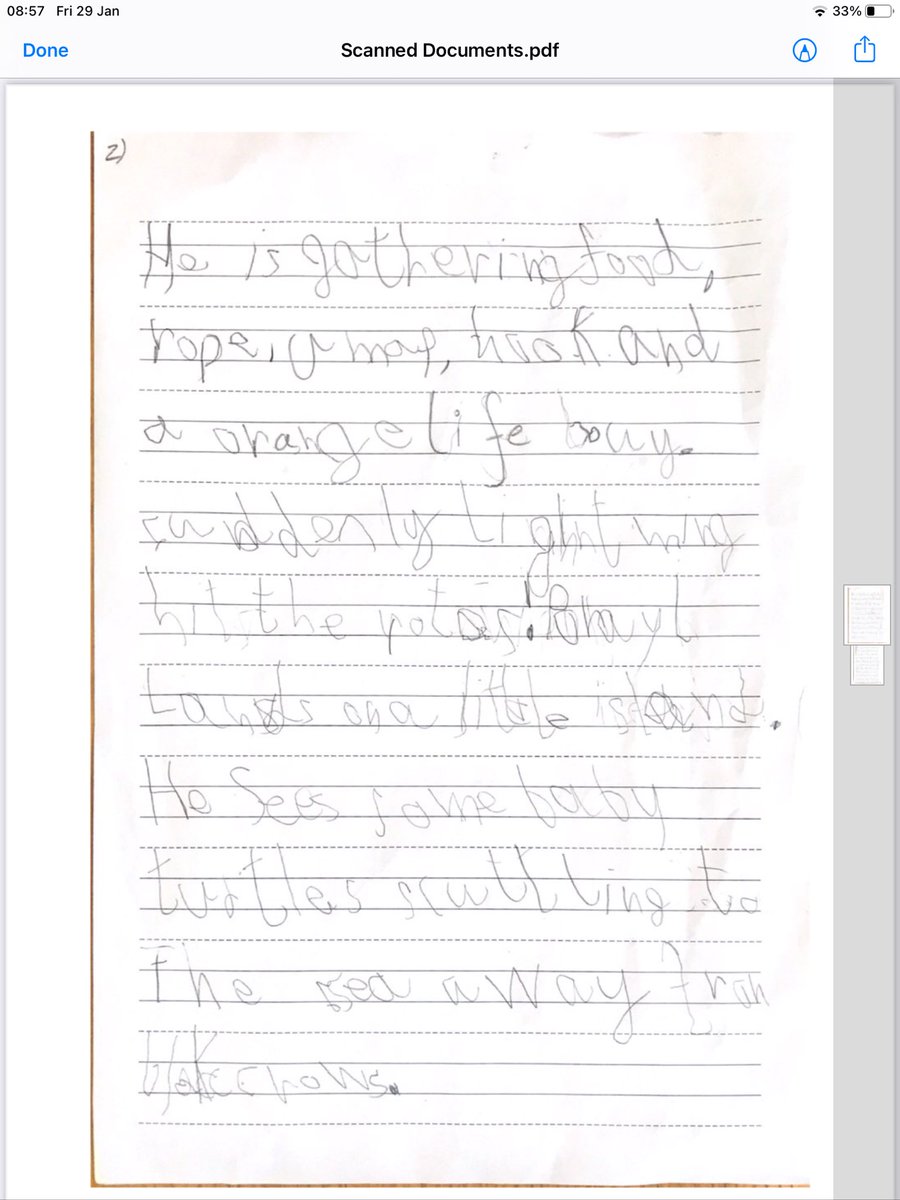 08:57 Fri 29 Jan
33%
Done
Scanned Documents.pdf
2)
He is gathering food,
rope, a map, hook and
a orange life bouy.
suddenly Lightning
hit the
Lands on a little island.
He Sees some baby
turtles scuttling to
The sea away from
crows.